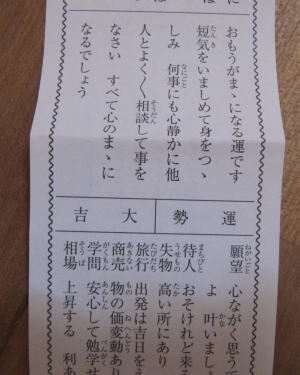 おもうがまゝになる運です
短気をいましめて身をつゝ
しみ 何事にも心静かに他
人とよく〱相談して事を
なさい すべて心のまゝに
なるでしょう
運勢
大吉
願望 心ながく思うて
よ 叶いましょ
待人 おそけれど来る
失物 高い所にあり
旅行 出発は吉日を
商売 物の価変動あり
学問 安心して勉学せ
相場 上昇する 利あ